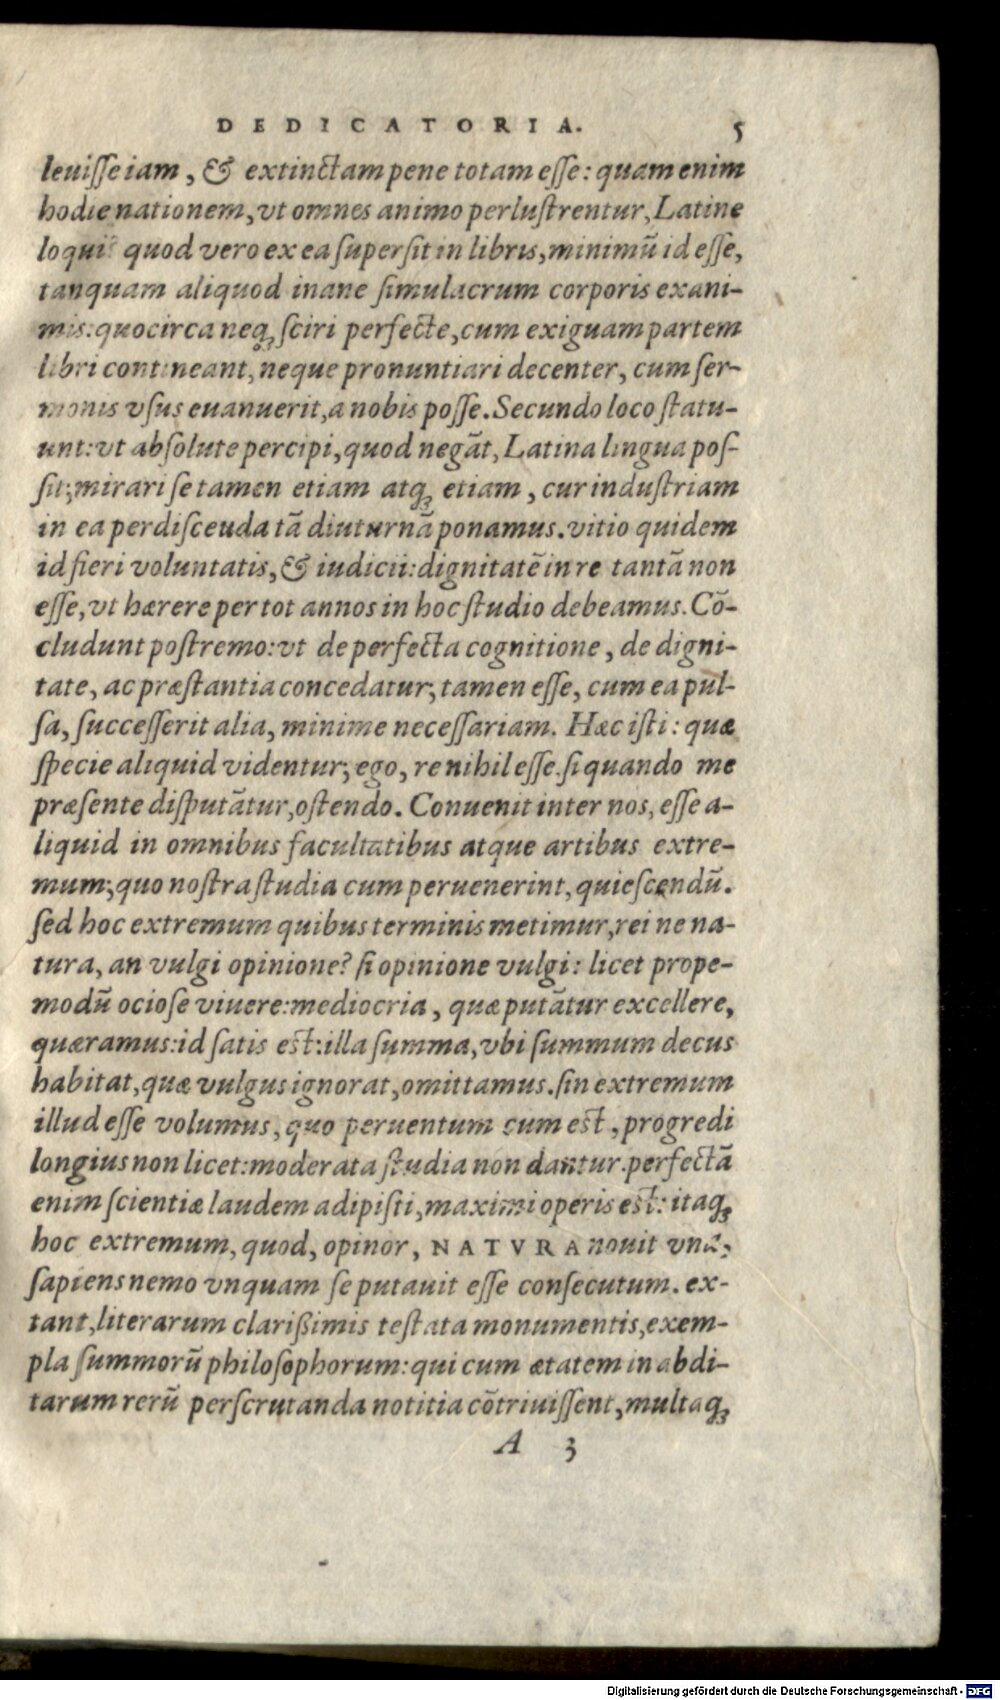 DEDICATORIA. 5
leuiſſe iam, & extinctam pene totam eſſe: quam enim
hodie nationem, vt omnes animo perluſtrentur, Latine
loqui? quod vero ex ea ſuperſit in libris, minimũ id eſſe,
tanquam aliquod inane ſimulacrum corporis exani-
mis: quocirca neqꝫ ſciri perfecte, cum exiguam partem
libri contineant, neque pronuntiari decenter, cum ſer-
monis vſus euanuerit, a nobis poſſe. Secundo loco ſtatu-
unt: vt abſolute percipi, quod negãt, Latina lingua poſ-
ſit; mirari ſe tamen etiam atqꝫ etiam, cur induſtriam
in ea perdiſceuda tã diuturnã ponamus. vitio quidem
id fieri voluntatis, & iudicii: dignitatẽ in re tantã non
eſſe, vt hærere per tot annos in hoc ſtudio debeamus. Cõ-
cludunt poſtremo: vt de perfecta cognitione, de digni-
tate, ac præſtantia concedatur; tamen eſſe, cum ea pul-
ſa, ſucceſſerit alia, minime neceſſariam. Hæc iſti: quæ
ſpecie aliquid videntur; ego, re nihil eſſe. ſi quando me
præſente diſputãtur, oſtendo. Conuenit inter nos, eſſe a-
liquid in omnibus facultatibus atque artibus extre-
mum; quo noſtra ſtudia cum peruenerint, quieſcendũ.
ſed hoc extremum quibus terminis metimur, rei ne na-
tura, an vulgi opinione? ſi opinione vulgi: licet prope-
modũ ocioſe viuere: mediocria, quæ putãtur excellere,
quæramus: id ſatis eſt: illa ſumma, vbi ſummum decus
habitat, quæ vulgus ignorat, omittamus. ſin extremum
illud eſſe volumus, quo peruentum cum eſt, progredi
longius non licet: moderata ſtudia non dantur. perfectã
enim ſcientiæ laudem adipiſti, maximi operis eſt: itaqꝫ
hoc extremum, quod, opinor, NATVRA nouit vna;
ſapiens nemo vnquam ſe putauit eſſe conſecutum. ex-
tant, literarum clarißimis teſtata monumentis, exem-
pla ſummorũ philoſophorum: qui cum ætatem in abdi-
tarum rerũ perſcrutanda notitia cõtriuiſſent, multaqꝫ
A 3
Digitalisierung gefördert durch die Deutsche Forschungsgemeinschaft - DFG